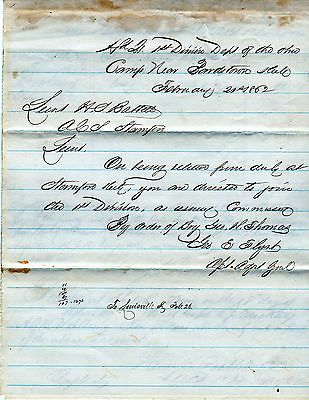 Hd Qt. 1st Division Dept of the Ohio
Camp Near
February 1862
Lieut H. S.
A. C. S. Stanford
Lieut.
On being relieved from duty at
Stanford you are directed to join
the 1st Division, as issuing Commissary
By order of Brig. Geo. H. Thomas
Geo. E. Flynt
Asst. Adjt. Genl
To Louisville Ky Feb 28